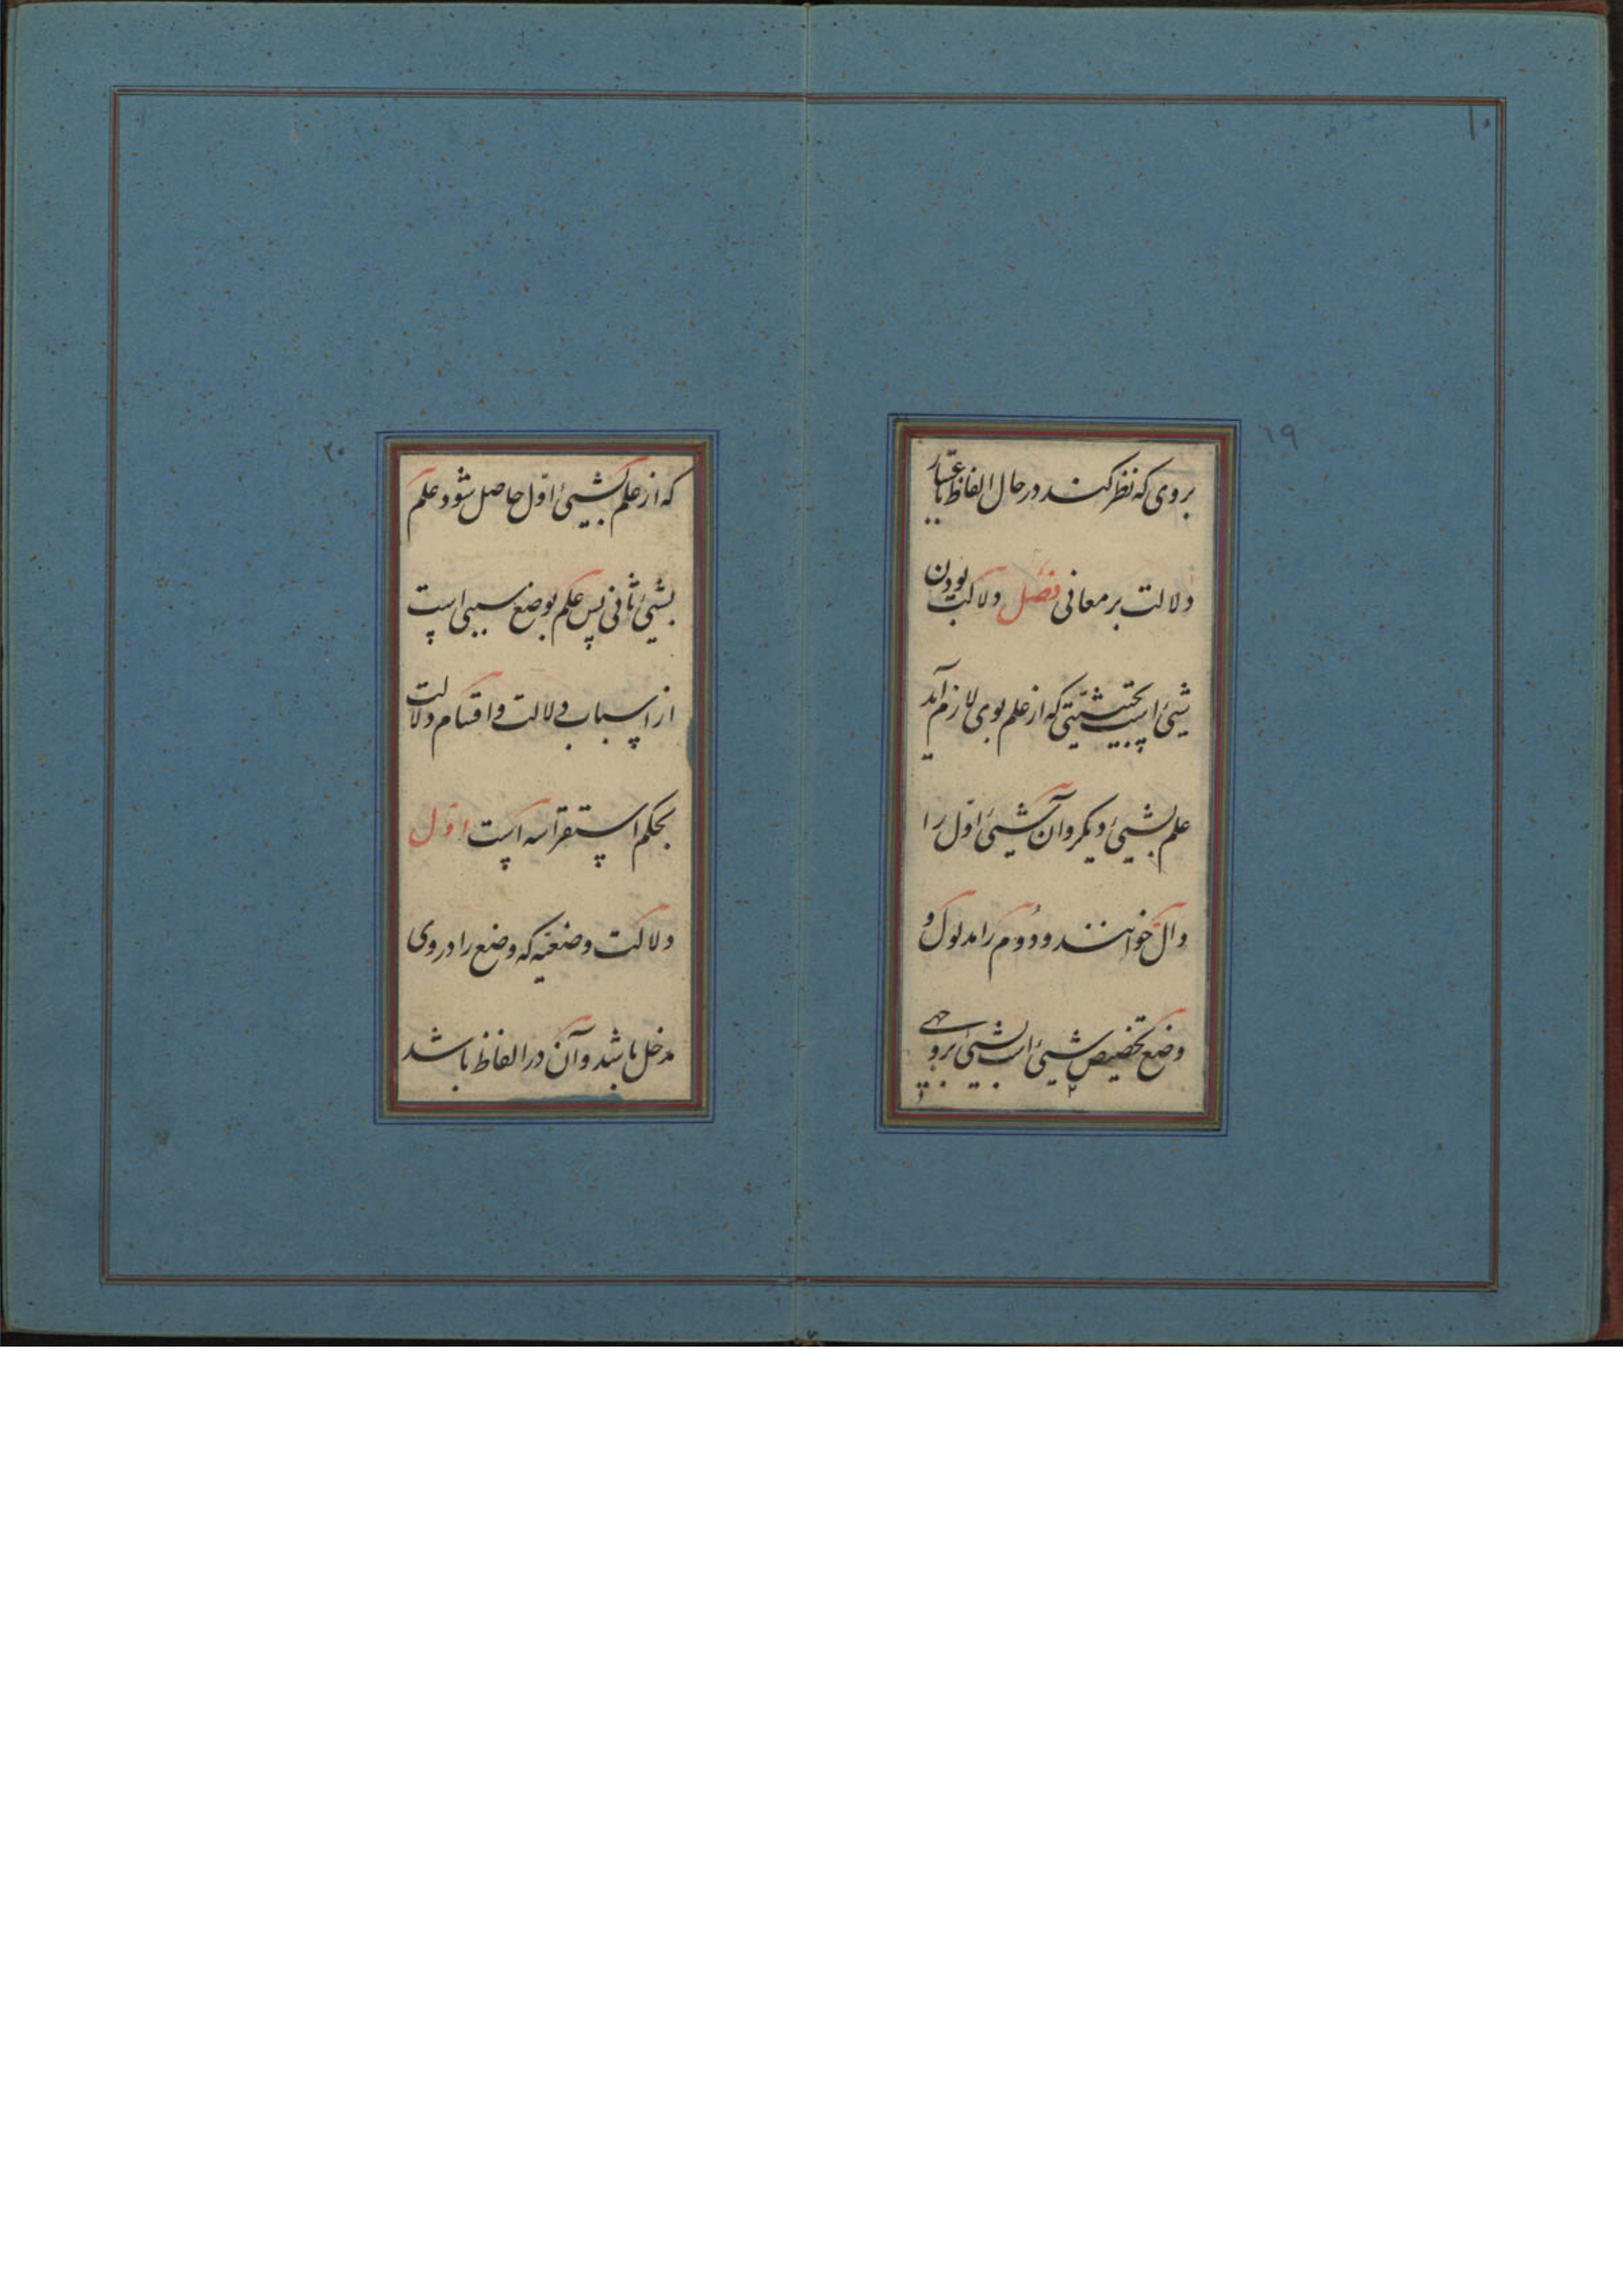 ۱۰
۱۹
بروی که نظر کنند در حال الفاظ باعتبار
دلالت بر معانی فصل دلالت بودن
شیئ است بحیثیتی که از علم بوی لازم آید
علم بشیئ دیگر و آن شیئ اول را
دال خوانند و دوم را مدلول و
وضع تخصیص شیئ است بشیئ بر وجهی
۲۰
که از علم بشیئ اول حاصل شود علم
بشیئ ثانی پس علم بوضع سببی است
از اسباب دلالت و اقسام دلالت
بحکم استقرا سه است اول
دلالت وضعیه که وضع را در وی
مدخل باشد و آن در الفاظ باشد